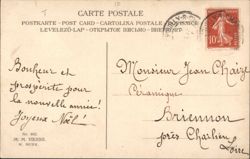 CARTE POSTALE
POSTKARTE - POST CARD - CARTOLINA POSTALE
LEVELEZŐ-LAP - ОТКРЫТОЕ ПИСЬМО
Bonheur et
prospérité pour
la nouvelle année!
Joyeux Noël!
Monsieur Jean Chaize
Céramique
Briennon
près Charlieu
Loire
10